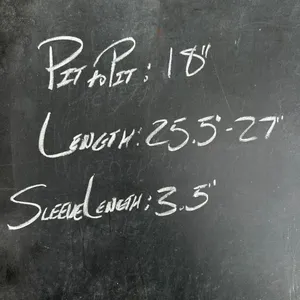 Pit to Pit: 18"
Length: 25.5"-27"
Sleeve Length: 3.5"